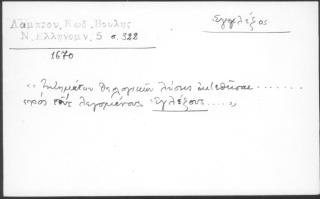 Λάμπρου, Κωδ. Βουλής
Ν. Ελληνομν. 5 σ. 328
Ἐγγλέζος
1670
«Ζητημάτων θεολογικῶν λύσεις ἐκτεθεῖσαι ........
πρὸς τοὺς λεγομένους Ἐγλέζους ....»